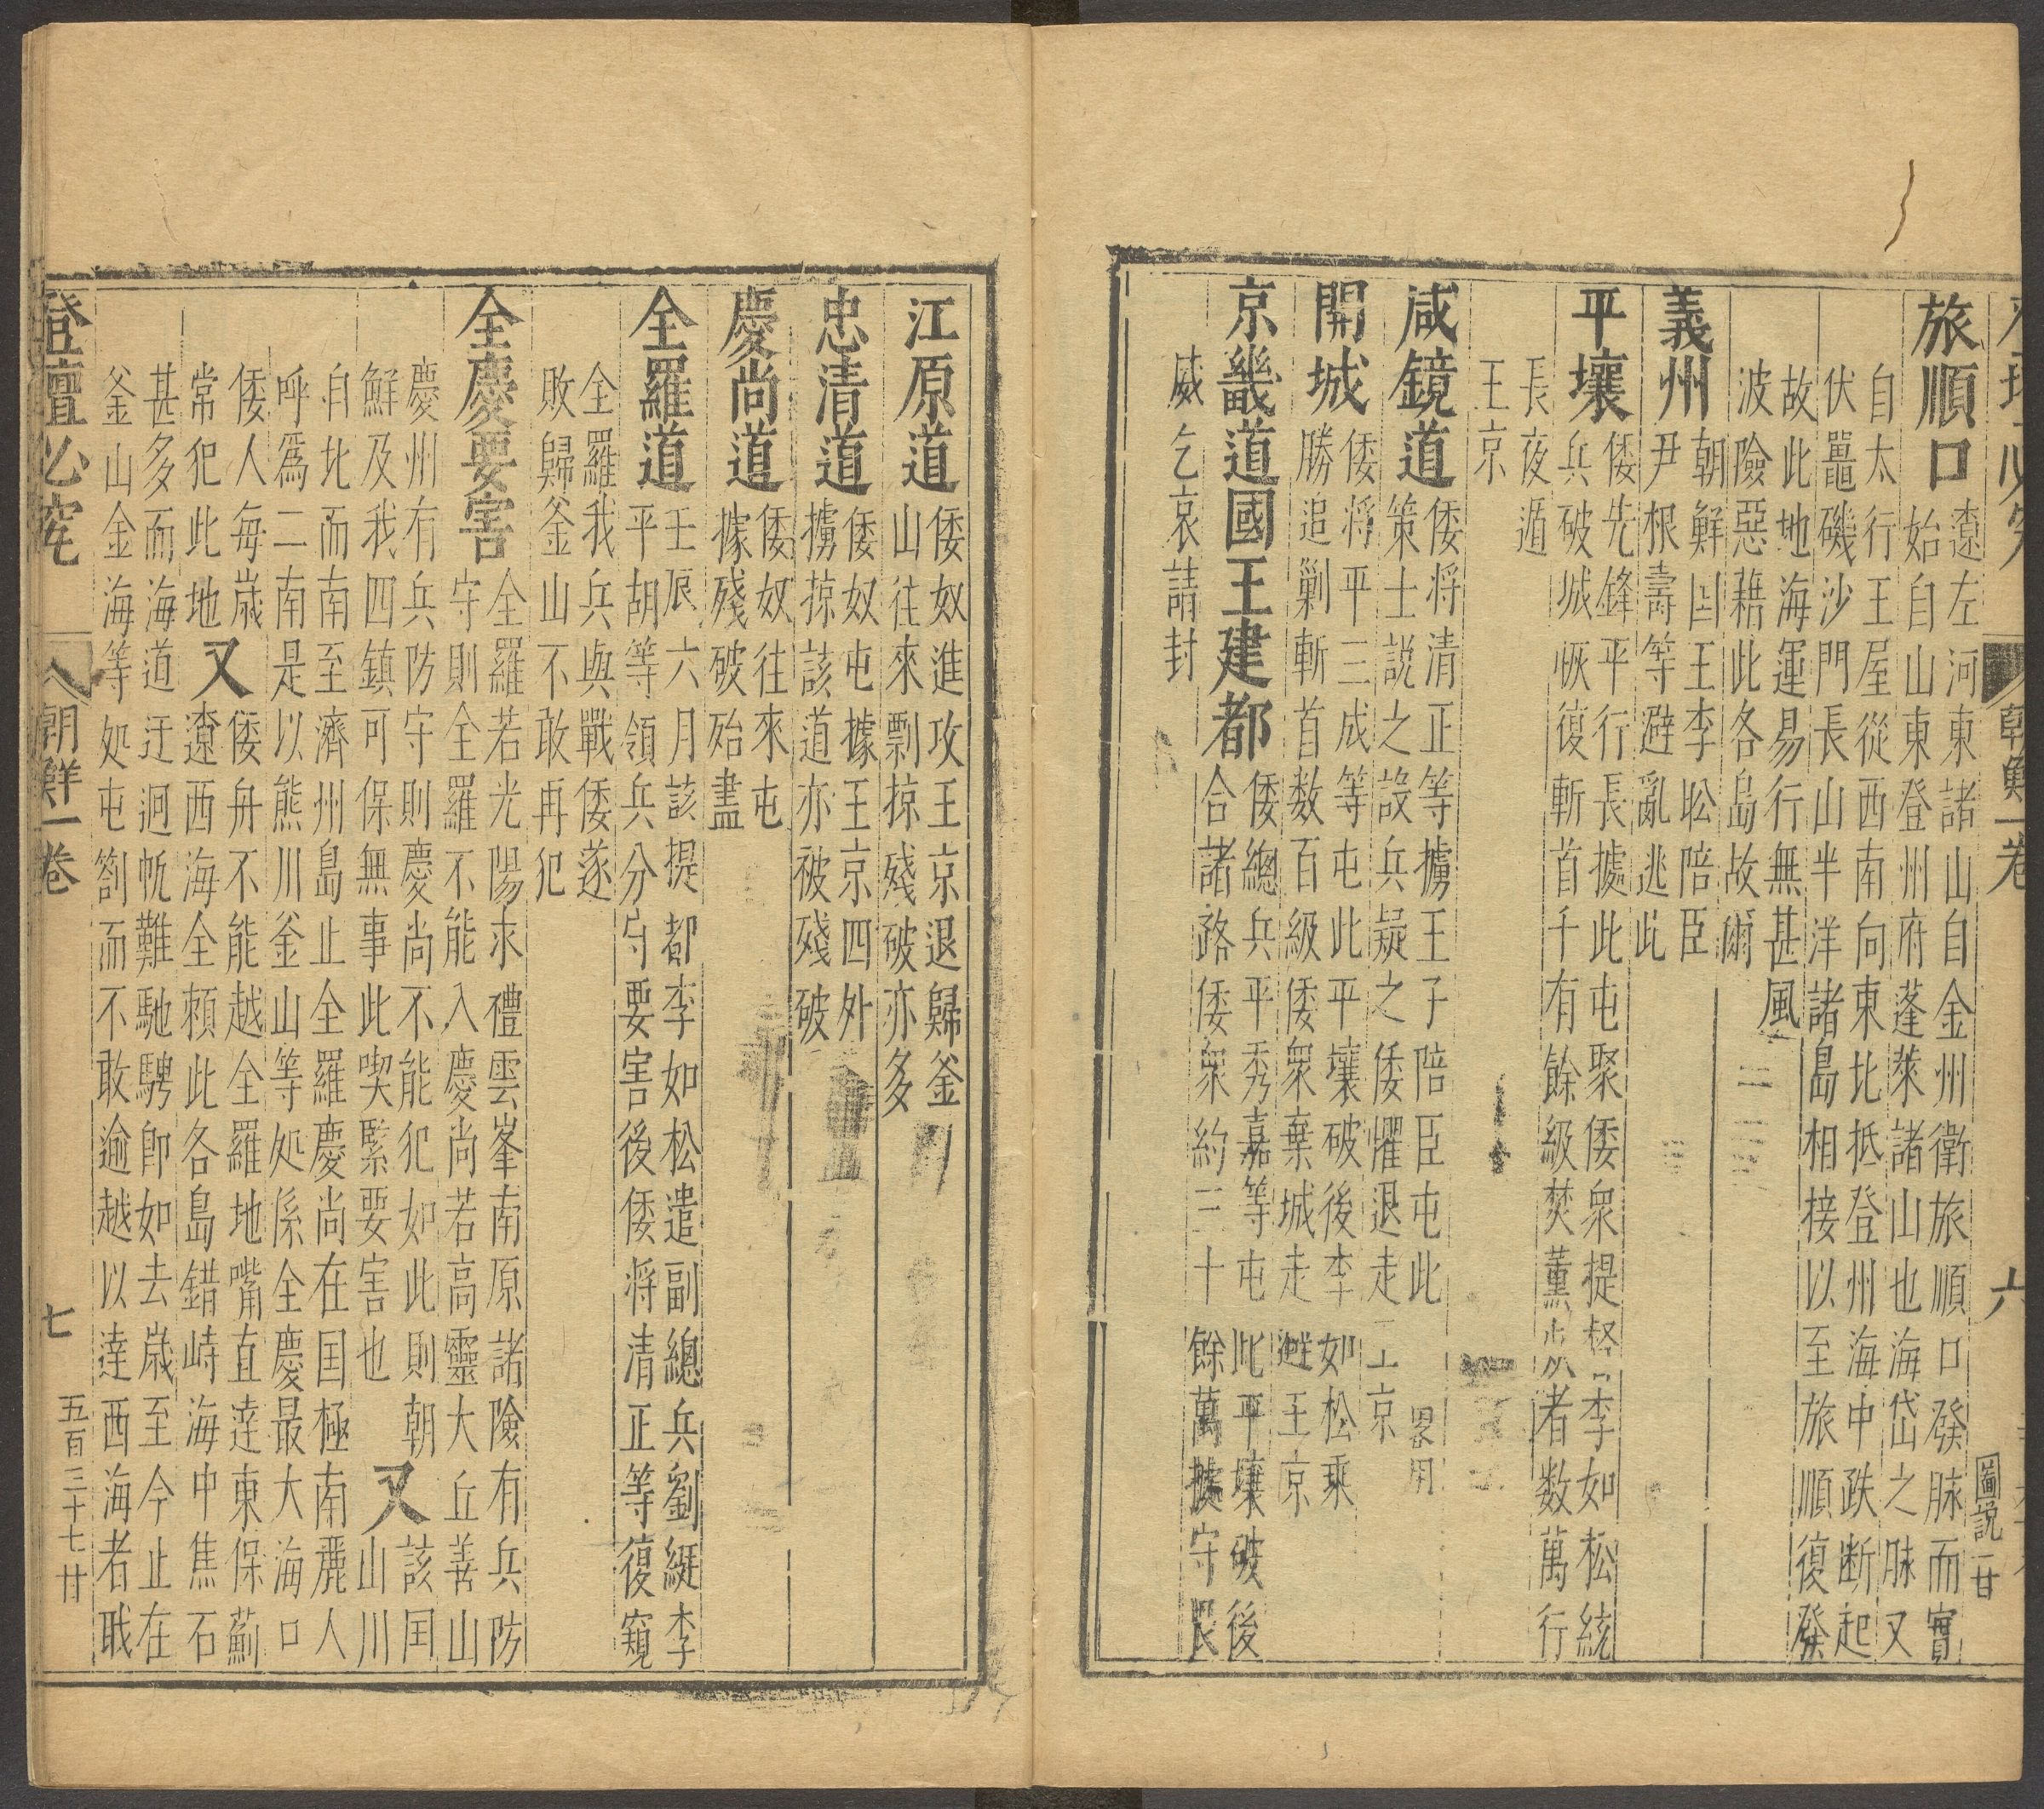 朝鮮一卷
六
圖說 廿
旅順口 遼左河東諸山自金州衛旅順口發脉而實
始自山東登州府蓬萊諸山也海岱之脉又
自太行王屋從西南向東北抵登州海中跌断起
伏鼉磯沙門長山半洋諸島相接以至旅順復發
故此地海運易行無甚風
波險惡藉此各島故爾
義州 朝鮮囯王李昖陪臣
尹根壽等避亂逃此
平壤 倭先鋒平行長據此屯聚倭衆提督李如松統
兵破城恢復斬首千有餘級焚薰者数萬行
長夜遁
王京
咸鏡道 倭将清正等擄王子陪臣屯此
策士説之設兵疑之倭懼退走王京
開城 倭将平三成等屯此平壤破後李如松乘
勝追剿斬首数百級倭衆棄城走避王京
京畿道國王建都 倭總兵平秀嘉等屯此平壤破後
合諸路倭衆約三十餘萬據守畏
威乞哀請封
江原道 倭奴進攻王京退歸釜
山往來剽掠殘破亦多
忠清道 倭奴屯據王京四外
擄掠該道亦被殘破
慶尚道 倭奴往來屯
據殘破殆盡
全羅道 壬辰六月該提都李如松遣副總兵劉綎李
平胡等領兵分守要害後倭将清正等復窺
全羅我兵與戰倭遂
敗歸釜山不敢再犯
全慶要害 全羅若光陽求禮雲峯南原諸險有兵防
守則全羅不能入慶尚若高靈大丘善山
慶州有兵防守則慶尚不能犯如此則朝
鮮及我四鎮可保無事此喫緊要害也 又 該囯山川
自北而南至濟州島止全羅慶尚在囯極南麗人
呼爲二南是以熊川釜山等処係全慶最大海口
倭人每歲 又 倭舟不能越全羅地嘴直逹東保薊
常犯此地 遼西海全頼此各島錯峙海中焦石
甚多而海道迂迥帆難馳騁卽如去歲至今止在
釜山金海等処屯劄而不敢逾越以逹西海者職
登壇必究
朝鮮一卷
七
五百三十七 廿